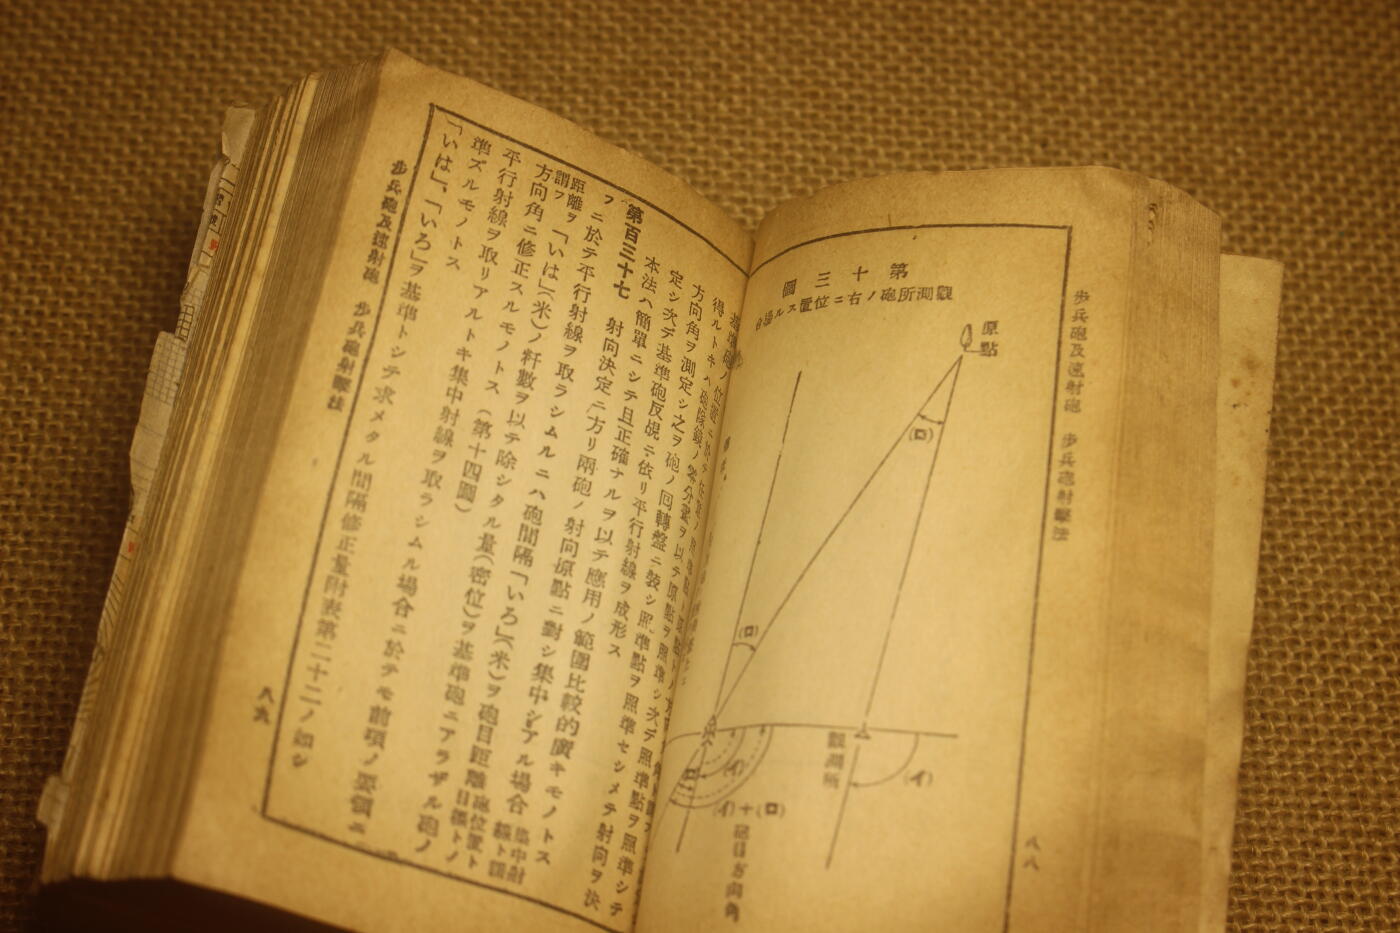 歩兵砲及速射砲　歩兵砲射撃法
八八
第十三圖
觀測所砲ノ右ニ位置スル場合
原點
(ロ)
(ロ)
觀測所
(イ)
(イ)
(イ)+(ロ)
砲目方向角
得ルトキハ砲隊鏡ノ
方向角ヲ測定シ之ヲ砲ノ回轉盤ニ裝シ照準點ヲ照準セシメテ射向ヲ決
定シ次デ基準砲反覘ニ依リ平行射線ヲ成形ス
本法ハ簡單ニシテ且正確ナルヲ以テ應用ノ範圍比較的廣キモノトス
第百三十七　射向決定ニ方リ兩砲ノ射向原點ニ對シ集中シアル場合
フニ於テ平行射線ヲ取ラシムルニハ砲間隔「いろ」(米)ヲ砲目距離
距離ヲ「いは」(米)ノ粁數ヲ以テ除シタル量(密位)ヲ基準砲ニアラザル砲ノ
謂フ
方向角ニ修正スルモノトス(第十四圖)
平行射線ヲ取リアルトキ集中射線ヲ取ラシムル場合ニ於テモ前項ノ要領ニ
準ズルモノトス
「いは」、「いろ」ヲ基準トシテ求メタル間隔修正量附表第二十二ノ如シ
歩兵砲及速射砲　歩兵砲射撃法
八九